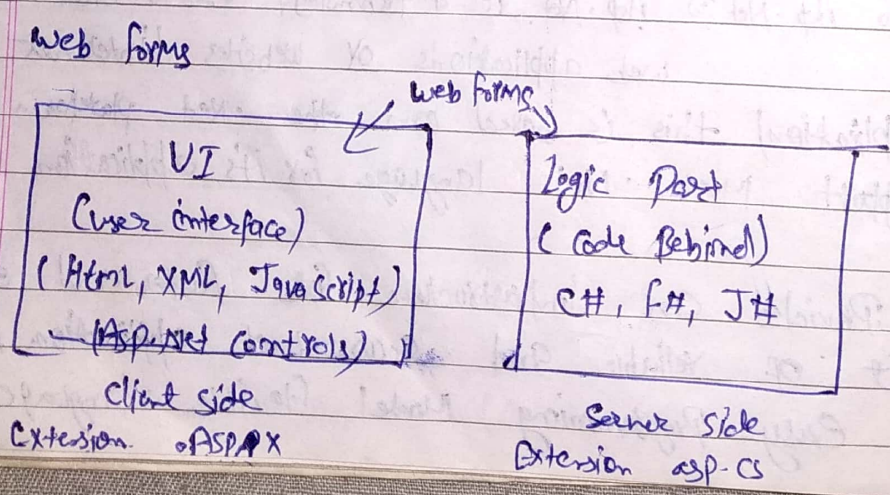 Web forms
Web forms
UI
(user interface)
(Html, XML, Java Script)
(Asp.Net Controls)
Client side
Extension .ASPX
Logic Part
(Code Behind)
C#, F#, J#
Server Side
Extension asp.cs